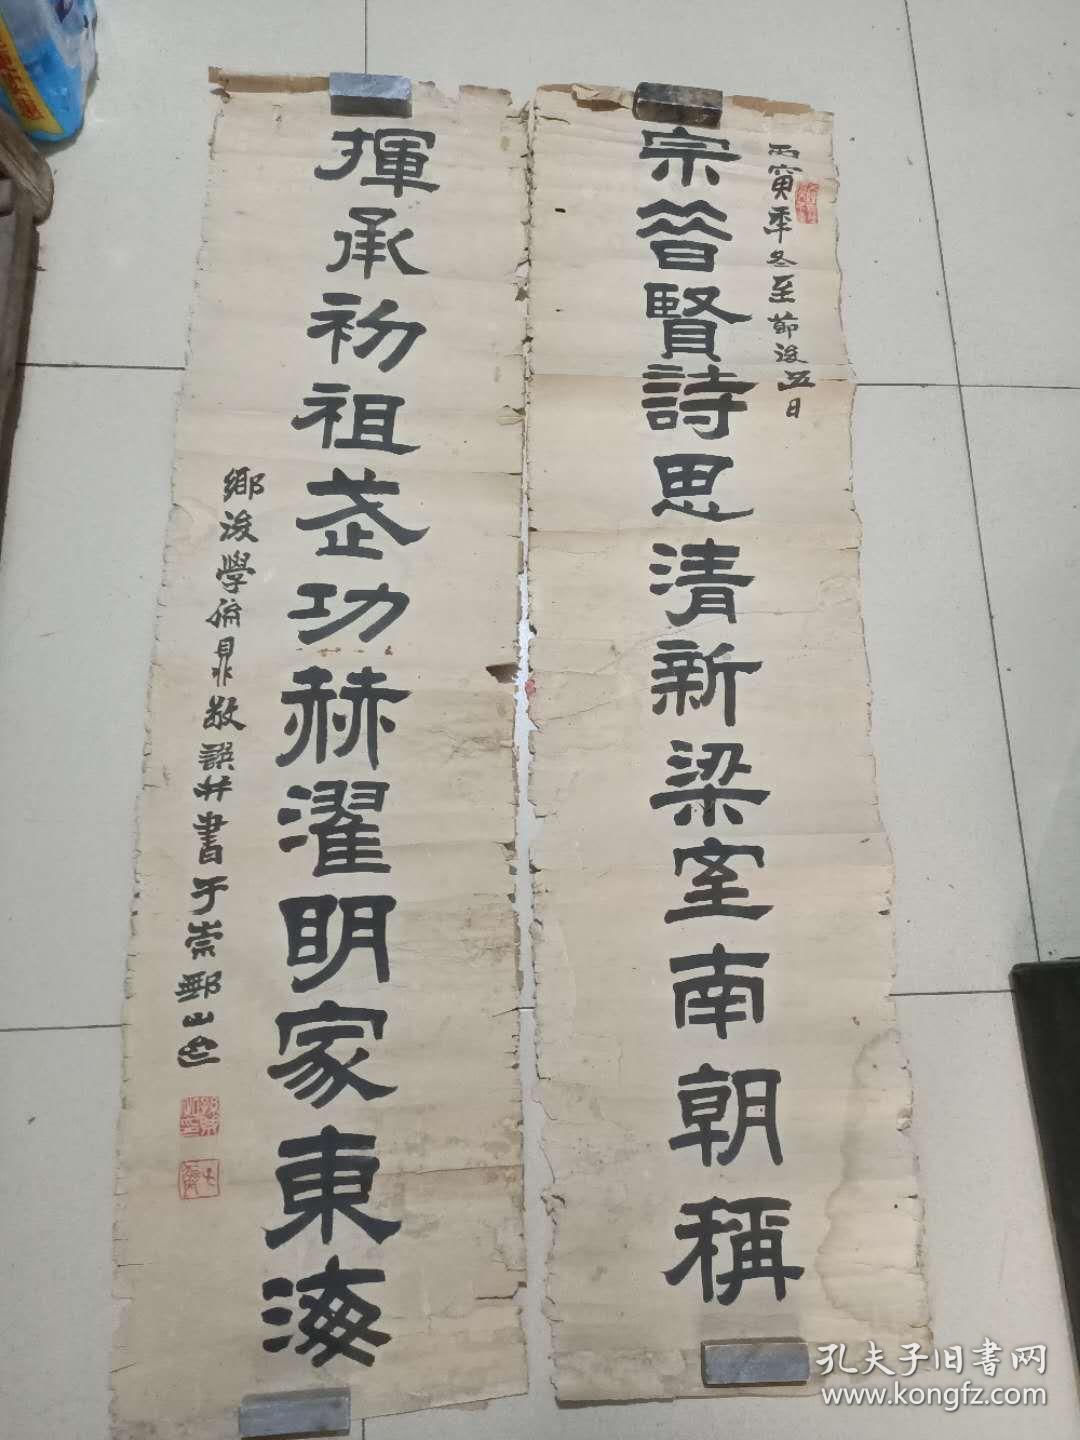 丙寅季冬至節後五日
宗晉賢詩思清新梁室南朝稱
揮承初祖武功赫濯明家東海
鄉後學俞鼎敬譔並書于崇鄮山
孔夫子旧書网
www.kongfz.com